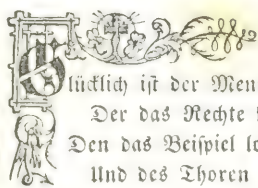 Glücklich ist der Men
Der das Rechte
Den das Beispiel lo
Und des Thoren